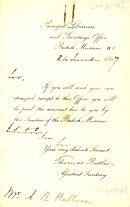 Principal Librarian
and Secretary's Office
British Museum W.C.
26 1867
Sir,
If you will send your own
stamped receipt to this Office you will
be paid the amount due to you by
the Trustees of the British Museum
I am
Sir
Your very obedient Servant
Thomas Butler
Assistant Secretary
Mr. A. R. Wallace